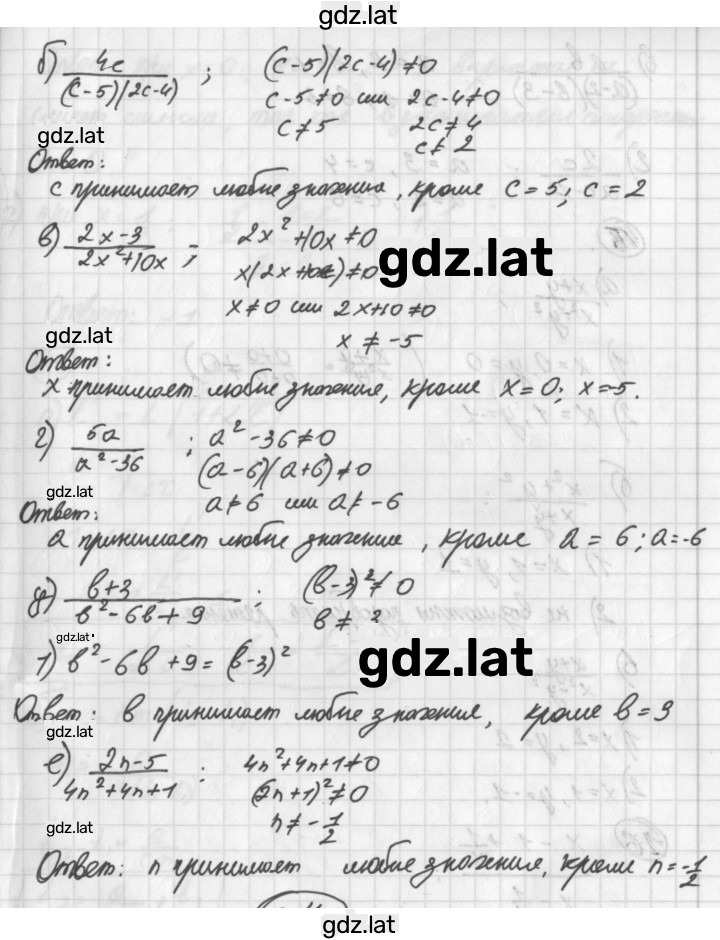 gdz.lat
б) 4c/((c-5)(2c-4)) ; (c-5)(2c-4)≠0
c-5≠0 или 2c-4≠0
c≠5 2c≠4
gdz.lat c≠2
Ответ:
c принимает любые значения, кроме c=5; c=2
в) (2x-3)/(2x²+10x) ; 2x²+10x≠0
gdz.lat
x(2x+10)≠0
x≠0 или 2x+10≠0
gdz.lat x≠-5
Ответ:
x принимает любые значения, кроме x=0; x=-5.
г) 5a/(a²-36) ; a²-36≠0
(a-6)(a+6)≠0
gdz.lat
a≠6 или a≠-6
Ответ:
a принимает любые значения, кроме a=6; a=-6
д) (b+3)/(b²-6b+9) ; (b-3)²≠0
b≠3
gdz.lat
1) b²-6b+9=(b-3)² gdz.lat
Ответ: b принимает любые значения, кроме b=3
gdz.lat
е) (2n-5)/(4n²+4n+1) : 4n²+4n+1≠0
(2n+1)²≠0
gdz.lat n≠-1/2
Ответ: n принимает любые значения, кроме n=-1/2
gdz.lat